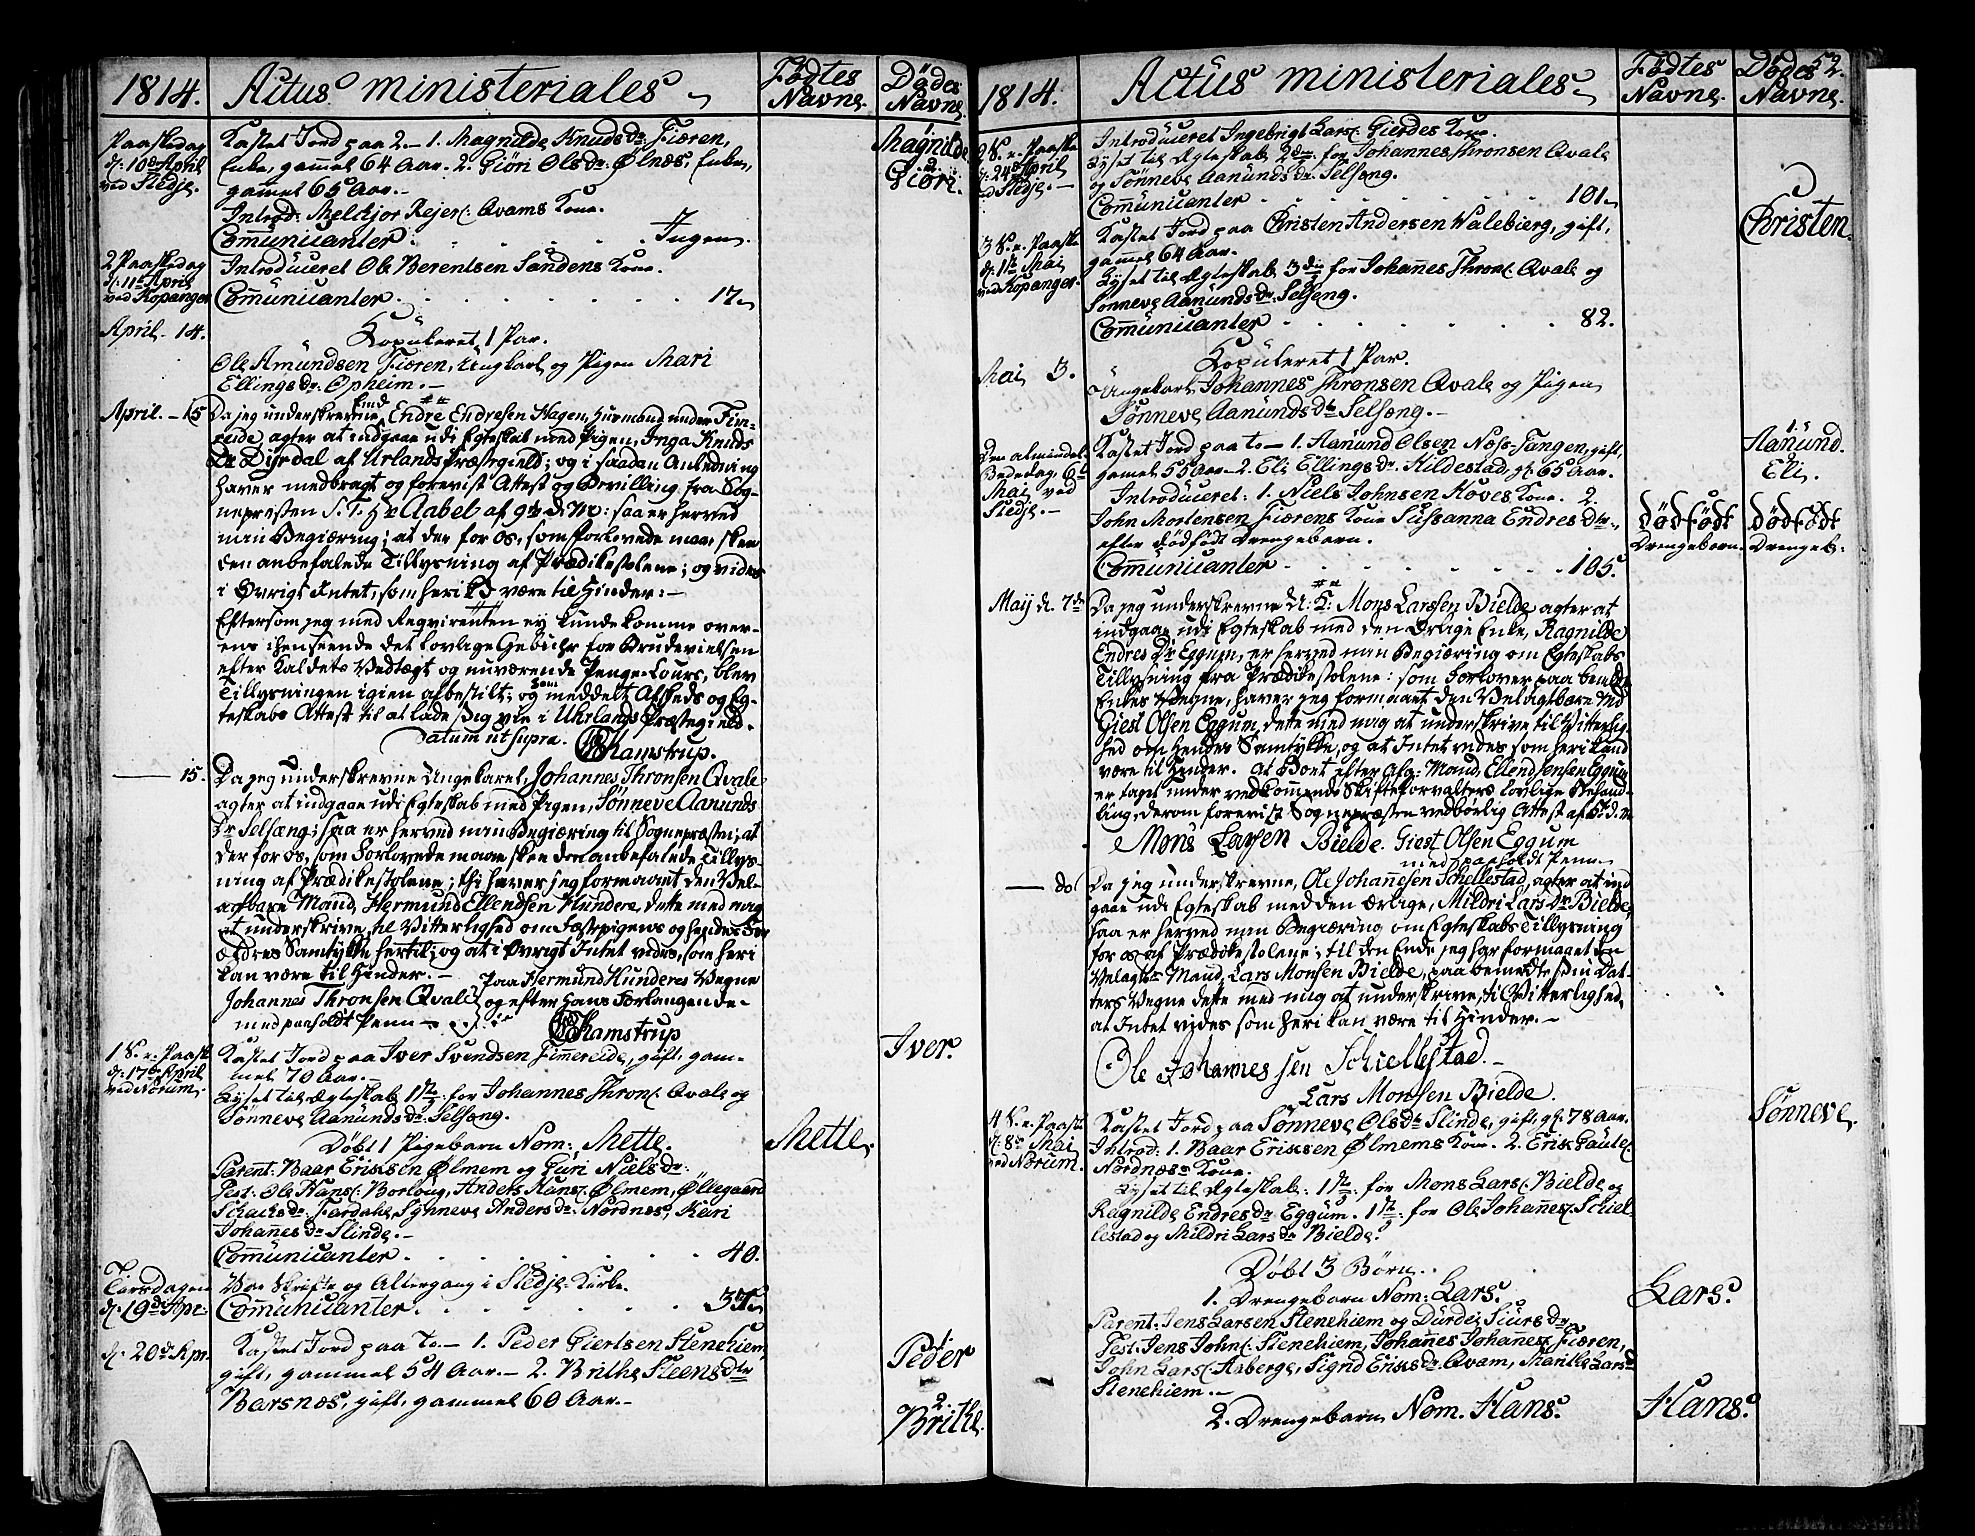 1814. Actus ministeriales Födtes Navne. Dödes Navne.
Paaskedag d: 10de April ved Stedje.
Kastet Jord paa 2. 1. Magnilde Knuds dr Fiæren,
Enke, gammel 64 Aar. 2. Giöri Ols dr: Ølnæs, Enke,
gammel 65 Aar.
1. Magnilde
2. Giöri.
Introd: Melchior Rejers: Qvams Kone.
Comunicanter. Ingen.
2 Paaskedag d: 11te April ved Kopanger
Introduceret Ole Berentsen Sandens Kone.
Comunicanter. 17
April. 14.
Kopuleret 1 Par.
Ole Amundsen Fiæren, Ungkarl og Pigen Mari
Ellings dr. Opheim.
April. 15
Da jeg underskrevne Enkemd Endre Endresen Hagen, Huusmand under Fim-
reide, agter at indgaae udi Egteskab med Pigen, Inga Knuds
Dr Dyrdal af Urlands Præstegield; og i saadan Anledning
haver medbragt og forevist Attest og Bevilling fra Sog-
nepresten S. T. Hr Aabel af 9de d. M: saa er herved
min Begiæring; at der for os, som forlovede maae skee
den anbefalede Tillysning af Prædikestolene; og vides
i Øvrigt Intet, som heri kan være til Hinder:
Eftersom jeg med Reqvirenten ey kunde komme over-
ens i henseende det lovlige Gebühr for Brudevielsen
efter Kaldets Vedtægt og nuværende Penge-Cours, blev
Tillysningen igien afbestilt; og meddelt Afskeds og Eg-
teskabs Attest til at lade sig vie i Uhrlands Præstegield.
Datum ut supra. Hamstrup.
15.
Da jeg underskrevne Ungekarl, Johannes Thronsen Qvale
agter at indgaae udi Egteskab med Pigen, Sönneve Aamunds
Dr Selseng; saa er herved min Begiæring til Sognepræsten; at
der for os, som Forlovede maae skee den anbefalede Tillys-
ning af Prædikestolene; thi haver jeg formaaet den Vel-
agtbare Mand, Hermund Ellendsen Hundere, dette med mig
at underskrive, til Vitterlighed om Fæstepigens og hendes For
ældres Samtykke hertil; og at i Øvrigt Intet vides, som heri
kan være til Hinder.
Paa Hermund Hunderes Vegne
Johannes Thronsen Qvale og efter hans Forlangende
med paaholdt Pen Hamstrup
1 S. e. Paaske d: 17de April ved Norum.
Kastet Jord paa Iver Svendsen Fimmereide, gift, gam-
mel 70 Aar.
Iver.
Lyset til Ægteskab 1ste for Johannes Throns: Qvale og
Sönneve Aamunds dr. Selseng.
Döbt 1 Pigebarn Nom: Mette.
Mette.
Parent: Baar Eriksen Ølmem og Guri Niels dr:
Test: Ole Hans: Borloug, Anders Hans: Ølmem, Øllegaard
Schacks dr: Fardahl, Synneve Anders dr. Nordnes, Kari
Johannes dr Slinde.
Comunicanter. 40.
Tirsdagen d: 19de Apr:
Var Skrifte og Altergang i Stedje-Kirke.
Comunicanter. 37
d: 20de Apr.
Kastet Jord paa To. 1. Peder Giertsen Stenehiem,
gift, gammel 54 Aar. 2. Brithe Steens dtr
Barsnæs, gift, gammel 60 Aar.
1. Peder
2. Brithe.
1814. Actus ministeriales Födtes Navne. Dödes Navne. 52.
2 S. e. Paaske d: 24de April ved Stedje.
Introduceret Ingebrigt Lars: Gierdes Kone.
Lyset til Ægteskab 2den for Johannes Thronsen Qvale
og Sönneve Aamunds dr. Selseng.
Comunicanter 101
3 S. e. Paaske d: 1ste Mai ved Kopanger.
Kastet Jord paa Christen Andersen Walebierg, gift,
gammel 64 Aar.
Christen.
Lyset til Ægteskab 3die for Johannes Throns: Qvale og
Sönneve Aamunds dr. Selseng.
Comunicanter 82.
Mai 3.
Kopuleret 1 Par.
Ungekarl Johannes Thronsen Qvale og Pigen
Sönneve Aamunds dtr Selseng.
Den almindel. Bededag, 6te Mai ved Stedje.
Kastet Jord paa to 1. Aamund Olsen Næss-Tangen, gift,
gamel 55 Aar 2. Eli Ellings dr. Hildestad, gl. 65 Aar.
1. Aamund.
Eli.
Introduceret: 1. Niels Johnsen Hoves Kone. 2.
John Mortensen Fiærens Kone Susanna Endres dtr.,
efter dödfödt Drengebarn.
dödfödt Drengebarn.
dödfödt Drengeb:
Comunicanter 105.
Maij d. 7de
Da jeg underskrevne Mons Larssen Bielde agter at
indgaae udi Egteskab med den Ærlige Enke, Ragnilde
Endres Dr Eggum, er herved min Begiæring om Egteskabs
Tillysning fra Prædikestolene: som Forlover paa bemeldte
Enkes Vegne, haver jeg formaaet den Velagtbare Md
Giest Olsen Eggum, dette med mig at underskrive til Vitterlig-
hed om hendes Samtykke, og at Intet vides, som heri kand
være til Hinder. At Boet efter Afg: Mand, Ellend Jensen Eggum
er taget under vedkommende Skifteforvalters lovlige Behand-
ling, derom forevist Sognepræsten vedbörlig Attest af 5te d. M
Mons Larsen Bielde. Giest Olsen Eggum
med paaholdt Pen
do
Da jeg underskrevne, Ole Johannesen Schiellestad, agter at ind
gaae udi Egteskab med den ærlige, Mildri Lars Dr Bielde,
saa er herved min Begiæring om Egteskabs Tillysning
for os af Prædikestolene; til den Ende jeg har formaaet den
Velagte Mand, Lars Monsen Bielde, paa bemeldte sin Dat-
ters Vegne dette med mig at underskrive, til Vitterlighed,
at Intet vides som heri kan være til Hinder.
Ole Johannes sen Schiellestad.
Lars Monsen Bielde.
4 S. e. Paaske d: 8de Mai ved Norum.
Kastet Jord paa Sönneve Ols dtr Slinde, gift, gl: 78 Aar.
Sönneve.
Introd: 1. Baar Eriksen Ølmems Kone. 2. Erik Pauls:
Nordnæs Kone.
Lyset til Ægteskab: 1ste: for Mons Lars: Bielde og
Ragnilde Endres dr Eggum. 1ste: for Ole Johannes: Schiel-
lestad og Mildri Lars dr Bielde.
Döbt 3 Börn.
1. Drengebarn Nom: Lars.
Lars.
Parent: Jens Larsen Stenehiem og Durdei Siurs dr
Test: Jens John: Stenehiem, Johannes Johannes: Fiæren,
John Lars: Aaberge, Sigrid Eriks dr. Qvam, Marithe Lars dr
Stenehiem.
2. Drengebarn Nom. Hans.
Hans.